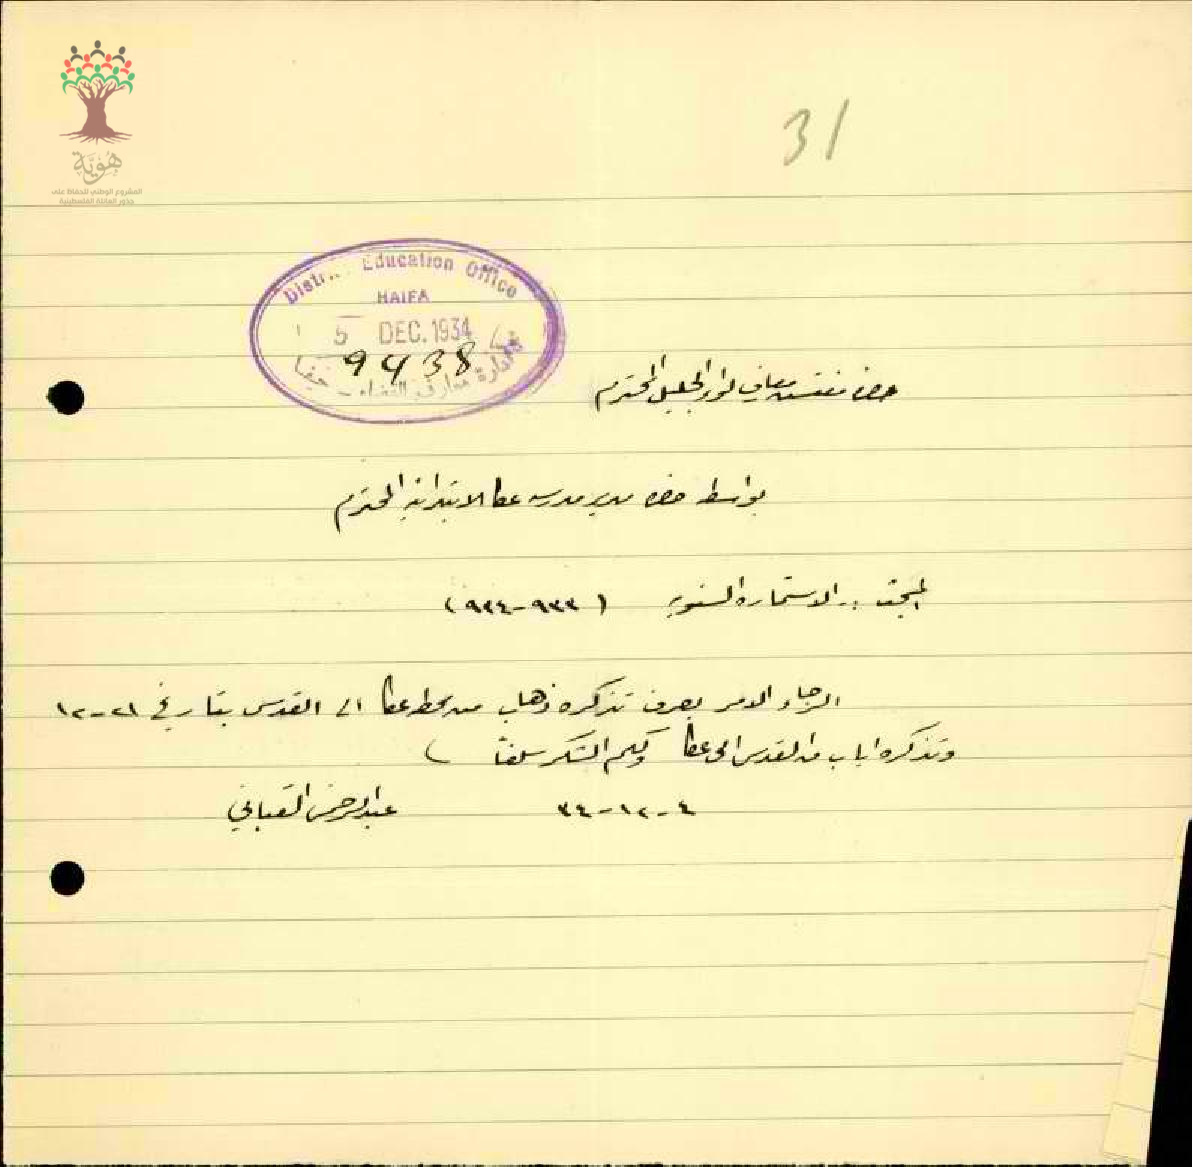 هُوِيَّة
المشروع الوطني للحفاظ على
جذور العائلة الفلسطينية
31
District Education Office
HAIFA
5 DEC. 1934
9438
إدارة معارف القضاء - حيفا
حضرة مفتش معارف لواء الجليل المحترم
بواسطة حضرة مدير مدرسة عكا الابتدائية المحترم
الاستمارة السنوية (٩٣٣-٩٣٤)
الرجاء الامر بصرف تذكرة ذهاب من محطة عكا الى القدس بتاريخ ٢١-١٢
وتذكرة اياب من القدس الى عكا ولكم الشكر سلفاً
٤-١٢-٣٤ عبد الرحمن القباني